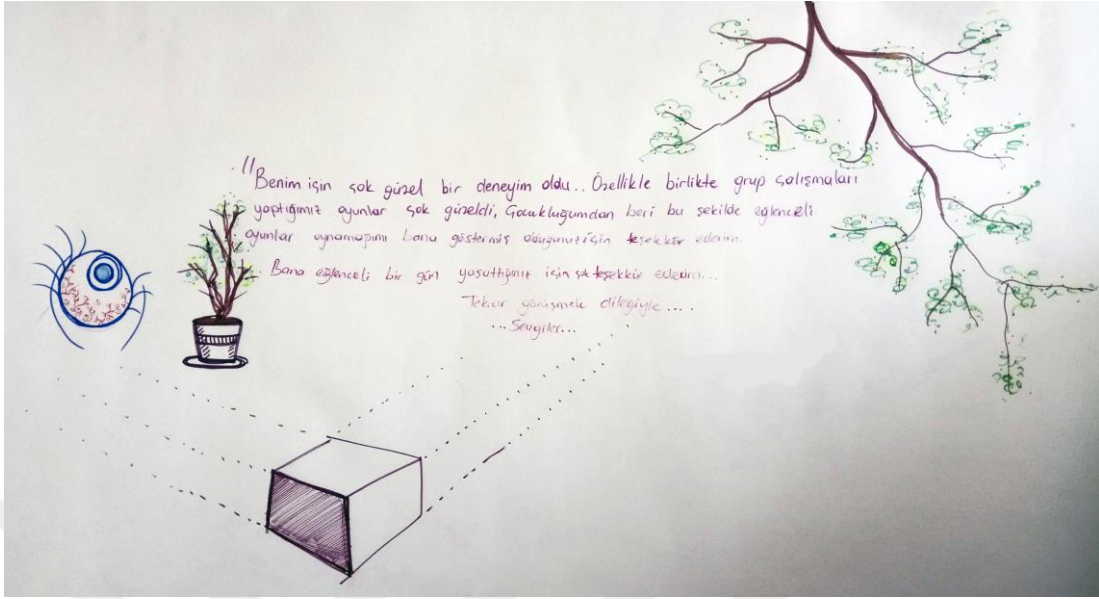 "Benim için çok güzel bir deneyim oldu.. Özellikle birlikte grup çalışmaları
yaptığımız oyunlar çok güzeldi, Çocukluğumdan beri bu şekilde eğlenceli
oyunlar oynamadığımı bana göstermiş olduğunuz için teşekkür ederim.
Bana eğlenceli bir gün yaşattığınız için çok teşekkür ederim...
Tekrar görüşmek dileğiyle....
...Sevgiler...